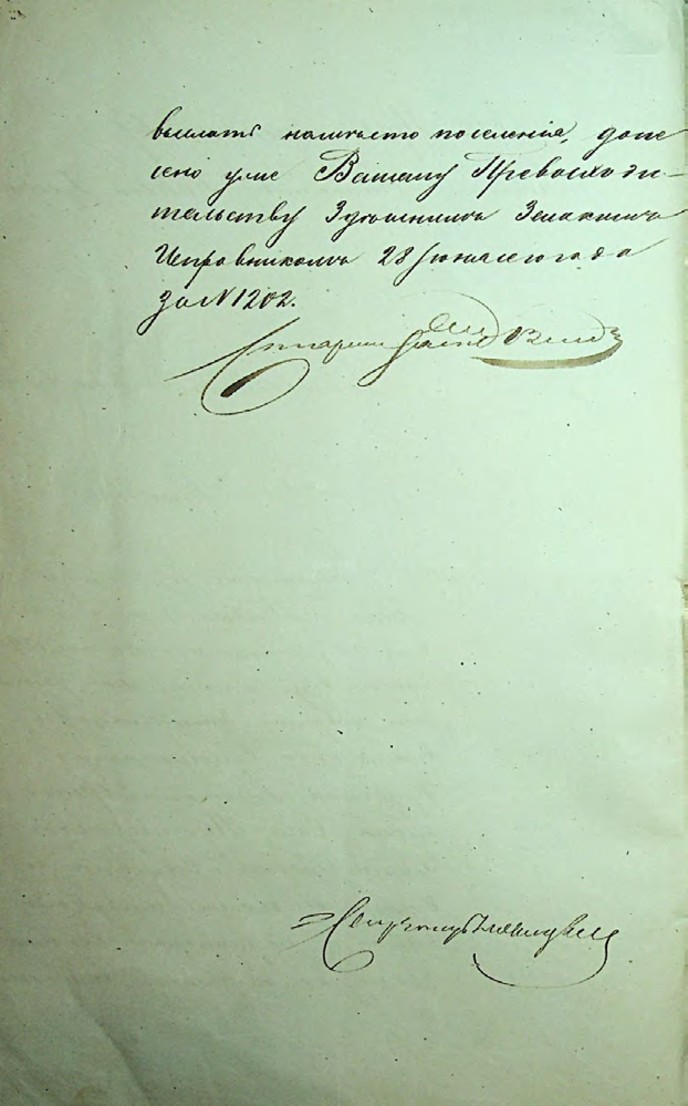 высылать на место поселенія, доне
сено уже Вашему Превосходи-
тельству Зугдидскимъ Земскимъ
Исправникомъ 28 Іюня сего года
за N 1202.
Секретарь